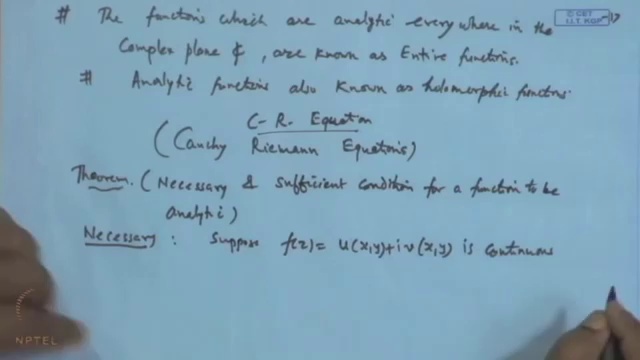 # The functions which are analytic every where in the
Complex plane ₵, are known as Entire functions.
# Analytic functions also known as holomorphic functions.
C-R. Equation
(Cauchy Riemann Equations)
Theorem. (Necessary & sufficient condition for a function to be
analytic)
Necessary : Suppose f(z) = u(x,y)+iv(x,y) is continuous
© CET
I.I.T. KGP
NPTEL